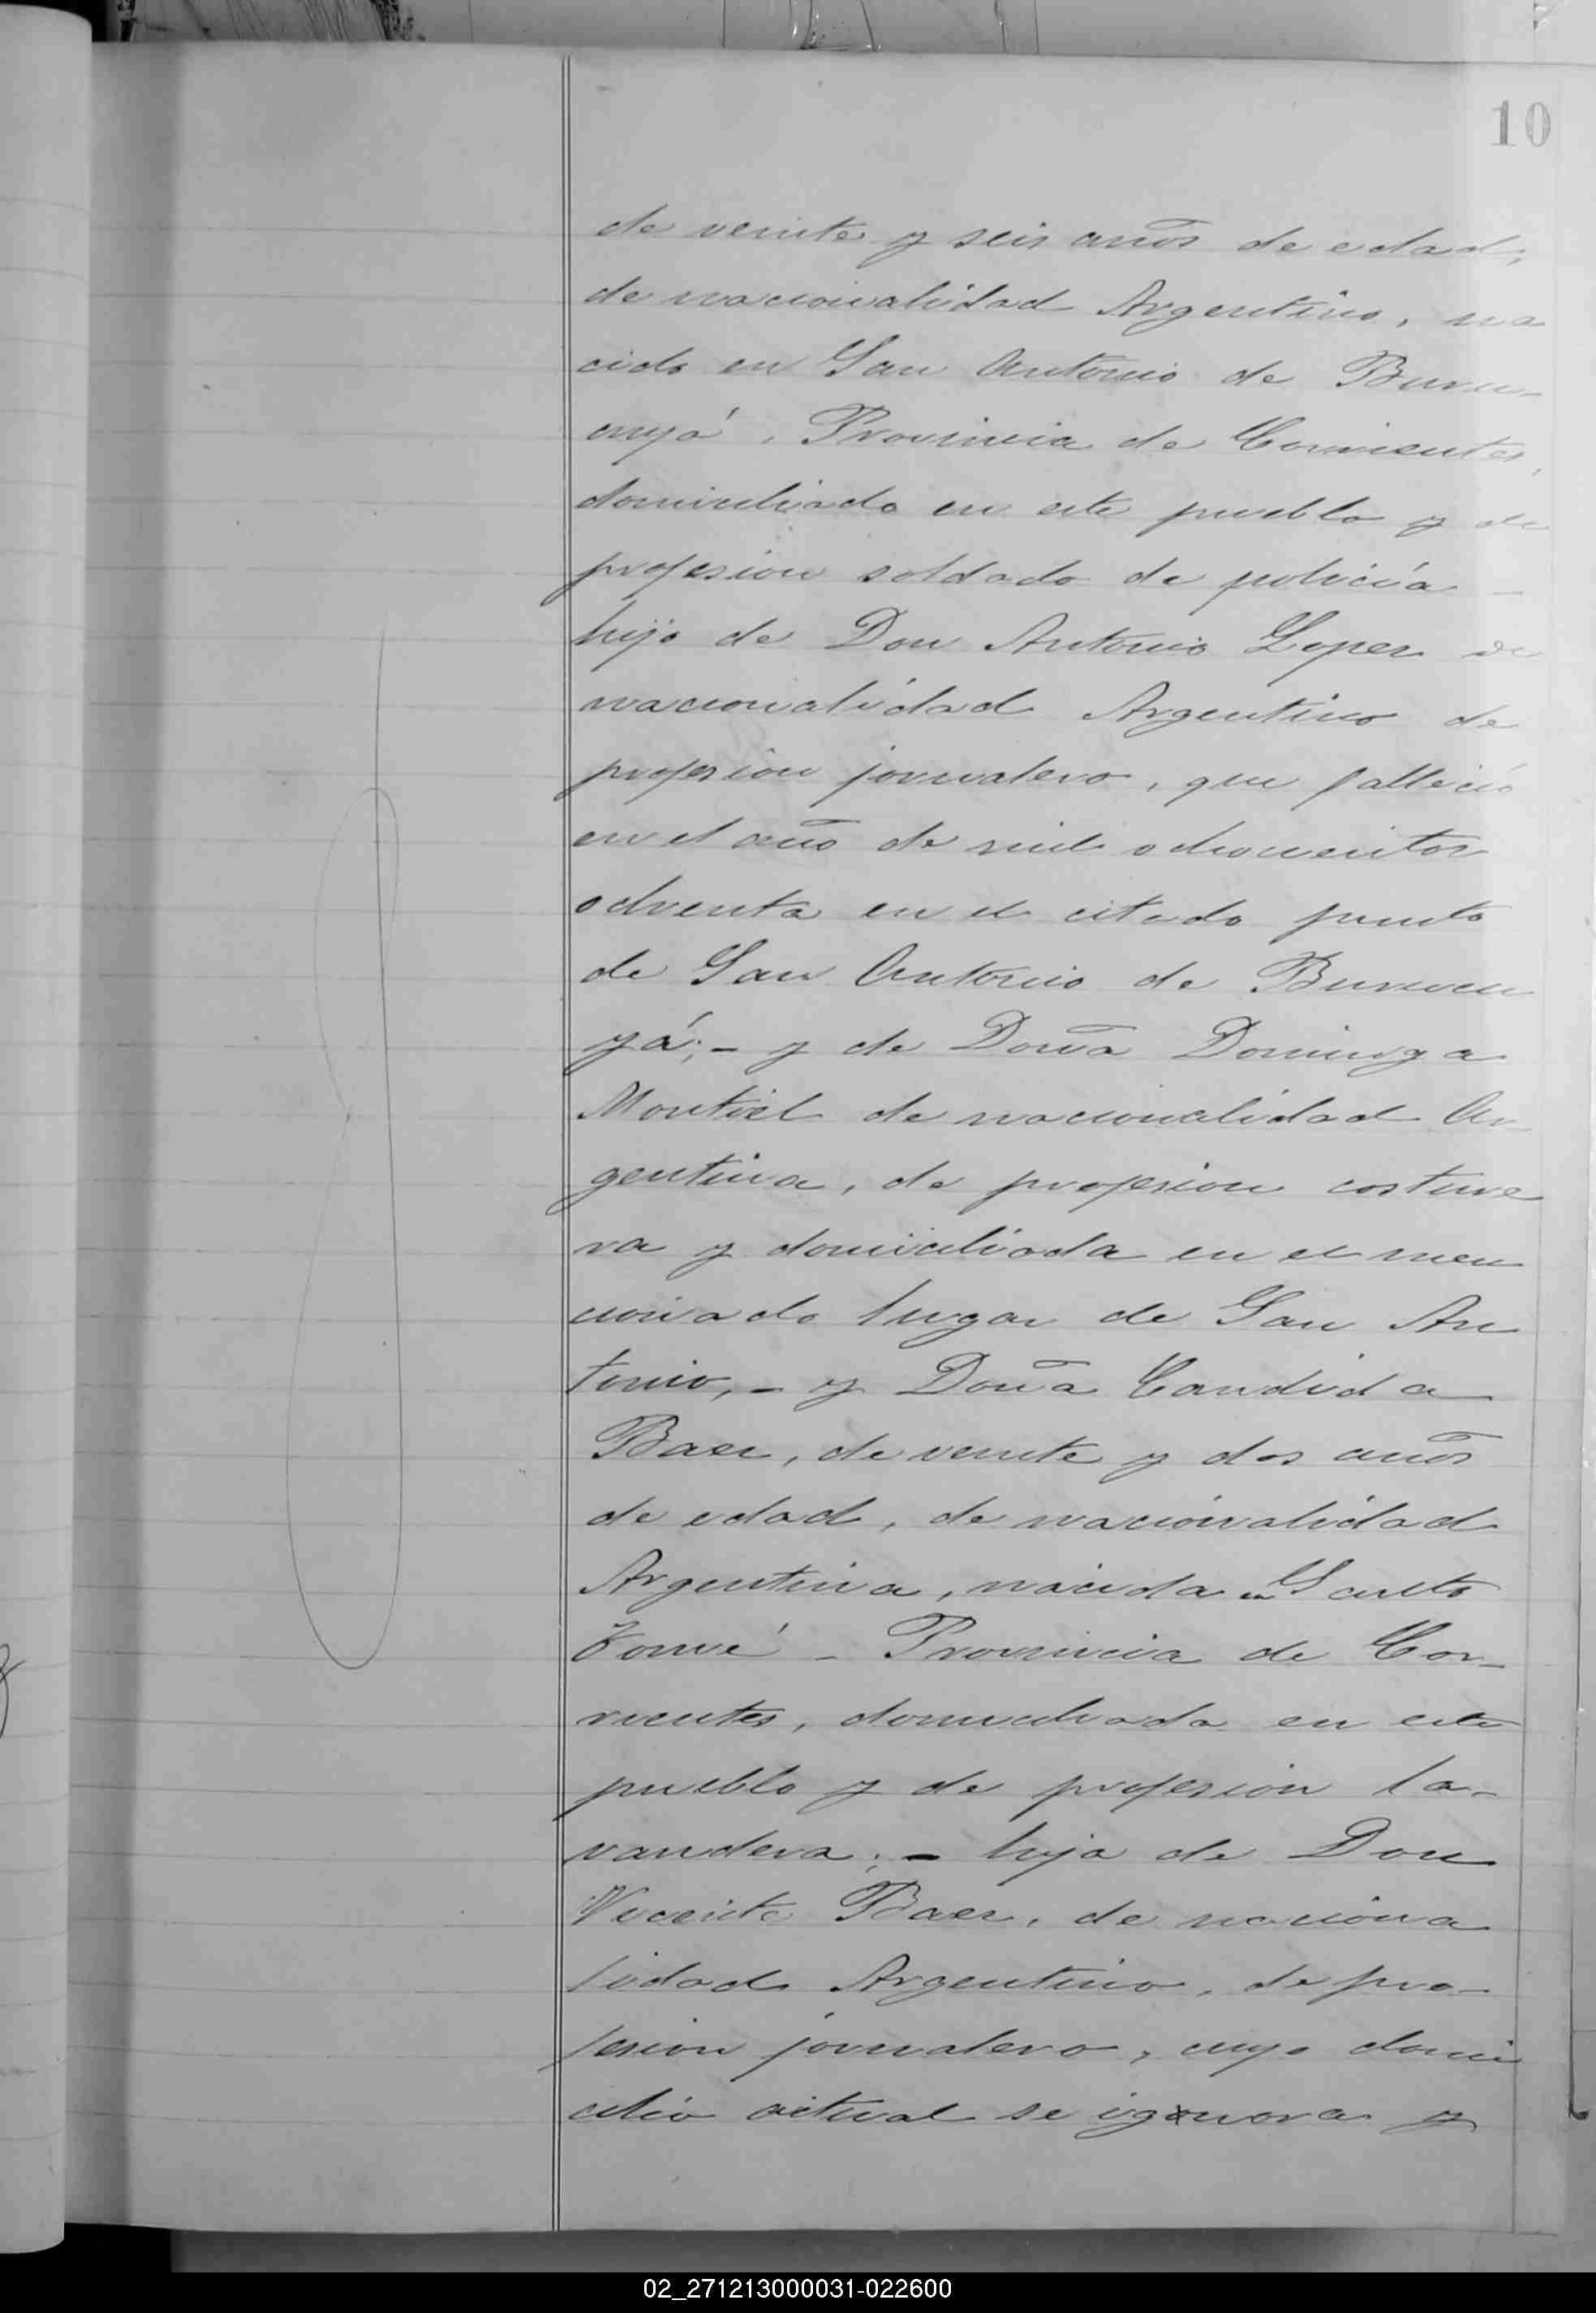 10
de veinte y seis años de edad,
de nacionalidad Argentino, na
cido en San Antonio de Buru-
cuyá, Provincia de Corrientes,
domiciliado en este pueblo y de
profesion soldado de policía -
hijo de Don Antonio Lopez de
nacionalidad Argentino de
profesion jornalero, que falleció
en el año de mil ochocientos
ochenta en el citado punto
de San Antonio de Burucu
yá; - y de Doña Dominga
Montiel de nacionalidad Ar
gentina, de profesion costure
ra y domiciliada en el men
cionado lugar de San An
tonio, - y Doña Candida
Baez, de veinte y dos años
de edad, de nacionalidad
Argentina, nacida en Santo
Tomé - Provincia de Cor-
rientes, domiciliada en este
pueblo y de profesion la-
vandera; - hija de Don
Vicente Baez, de naciona
lidad Argentino, de pro-
fesion jornalero, cuyo domi
cilio actual se ignora y
02_271213000031-022600